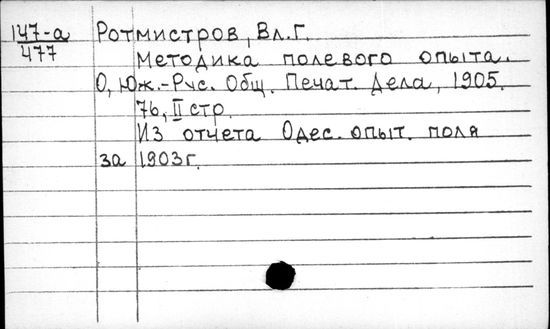 147-а Ротмистров, Вл. Г.
477 Методика полевого опыта.
О, Юж.-Рус. Общ. Печат. Дела, 1905.
76, II стр.
Из отчета Одес. опыт. поля
за 1903 г.